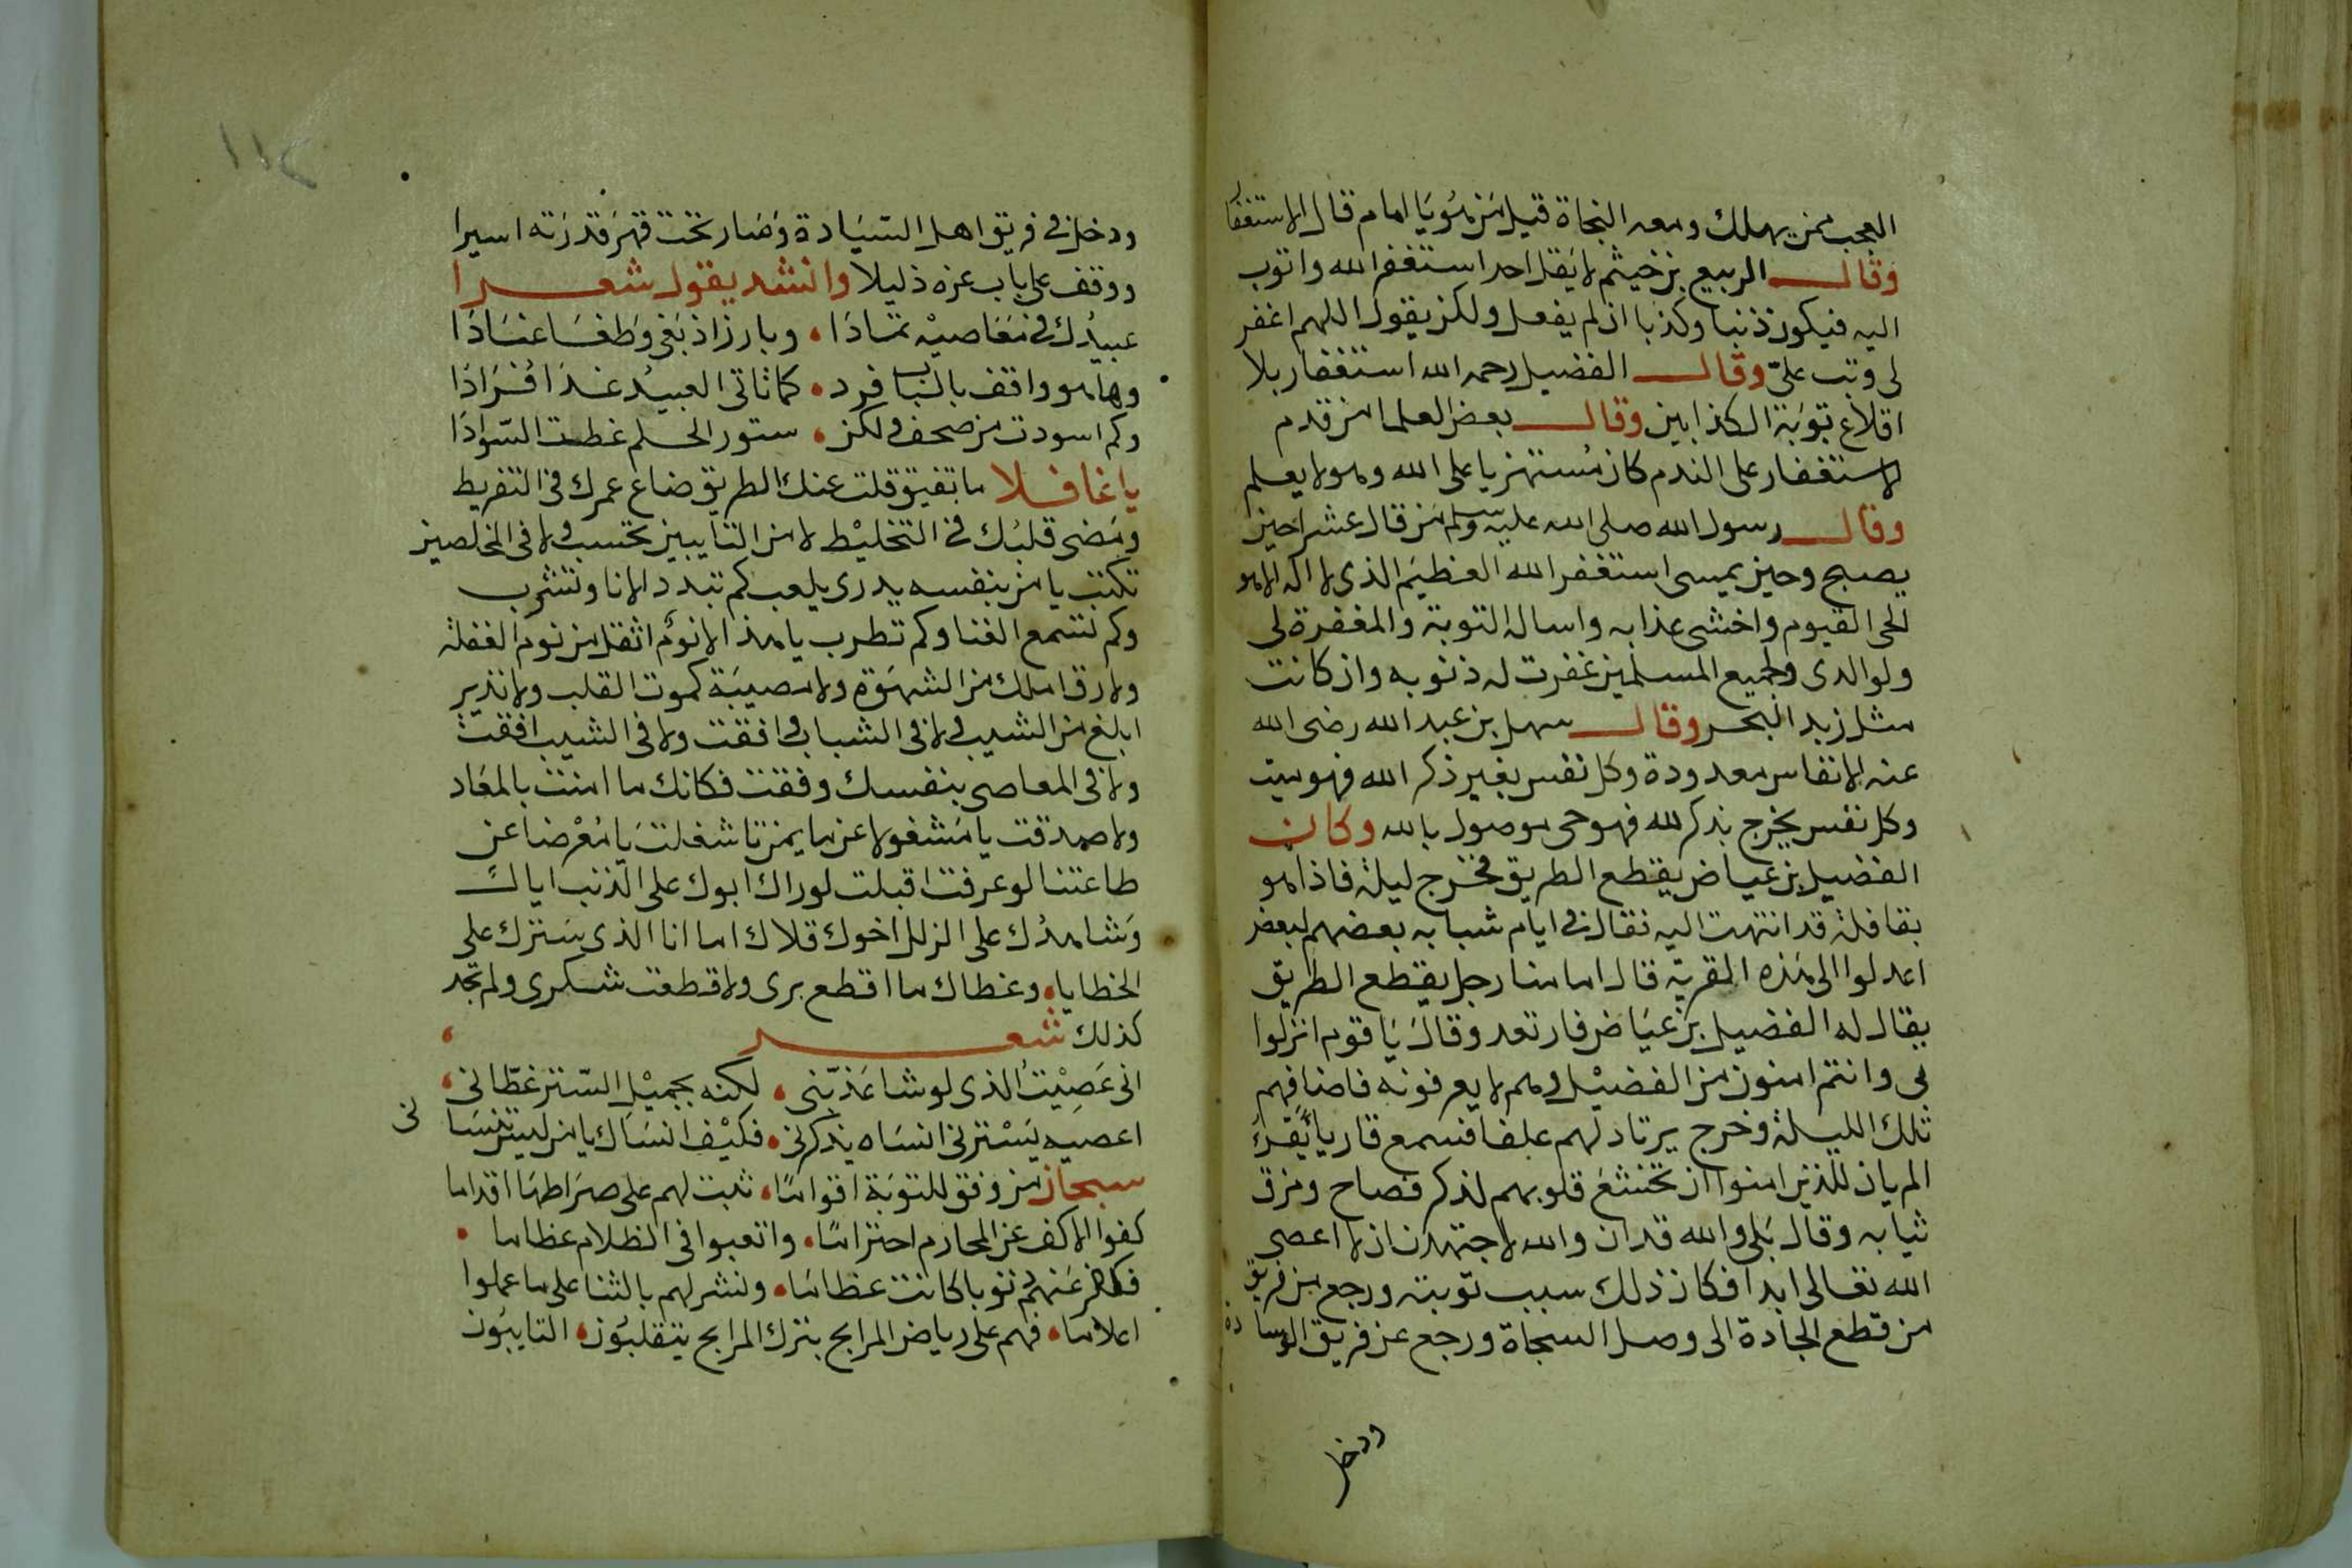 العجب ممن يهلك ومعه النجاة قيل من هو يا امام قال الاستغفار
وقال الربيع بن خيثم لا يقل احد استغفر الله واتوب
اليه فيكون ذنبا وكذبا ان لم يفعل ولكن يقول اللهم اغفر
لى وتب علىّ وقال الفضيل رحمه الله استغفار بلا
اقلاع توبة الكذابين وقال بعض العلما من قدم
الاستغفار على الندم كان مستهزيا على الله وهو لا يعلم
وقال رسول الله صلى الله عليه وسلم من قال عشرا حين
يصبح وحين يمسى استغفر الله العظيم الذى لا اله الا هو
الحى القيوم واخشى عذابه واساله التوبة والمغفرة لى
ولوالدى ولجميع المسلمين غفرت له ذنوبه وان كانت
مثل زبد البحر وقال سهل بن عبد الله رضى الله
عنه الانفاس معدودة وكل نفس بغير ذكر الله فهو ميت
وكل نفس يخرج بذكر الله فهو حى موصول بالله وكان
الفضيل بن عياض يقطع الطريق فخرج ليلة فاذا هو
بقافلة قد انتهت اليه فقال فى ايام شبابه بعضهم لبعض
اعدلوا الى هذه القرية قال امامنا رجل يقطع الطريق
يقال له الفضيل بن عياض فارتعد وقال يا قوم انزلوا
بى وانتم امنون من الفضيل وهم لا يعرفونه فاضافهم
تلك الليلة وخرج يرتاد لهم علفا فسمع قاريا يقرا
الم يان للذين امنوا ان تخشع قلوبهم لذكر فصاح ومزق
ثيابه وقال بلى والله قد ان والله لاجتهدن ان لا اعصى
الله تعالى ابدا فكان ذلك سبب توبته ورجع من فريق
من قطع الجادة الى وصل السجاة ورجع عن فريق الوسادة
ودخل
١١٢
ودخل فى فريق اهل السّيادة وصار تحت قهر قدرته اسيرا
ووقف على باب عزه ذليلا وانشد يقول شعرا
عبيدك فى معاصيه تمادا وبارز اذ بغى وطغا عنادا
وها هو واقف بالباب فرد كما تاتى العبيد غدا فرادا
وكم اسودت من صحف ولكن ستور الحلم غطت السّوادا
يا غافلا ما تفيق قلت عنك الطريق ضاع عمرك فى التفريط
ومضى قلبك فى التخليط لا من التايبين تحتسب ولا فى المخلصين
تكتب يا من بنفسه يدرى يلعب كم تبدد الانا وتشرب
وكم تسمع الغنا وكم تطرب يا هذا لا نوم اثقل من نوم الغفلة
ولا رق املك من الشهوة ولا مصيبة كموت القلب ولا نذير
ابلغ من الشيب لا فى الشباب وافقت ولا فى الشيب افقت
ولا فى المعاصى بنفسك وفقت فكانك ما امنت بالمعاد
ولا صدقت يا مشغولا عن ما يمزتنا شغلت يا معرضا عن
طاعتنا لو عرفت اقبلت لوراك ابوك على الذنب اباك
وشاهدك على الزلل اخوك قلاك اما انا الذى يسترك على
الخطايا وغطاك ما اقطع برى ولا قطعت شكرى ولم تجد
كذلك شعر
انى عصيت الذى لو شا عذّبنى لكنه بجميل السّتر غطّانى
اعصيه يسترنى انساه يذكرنى فكيف انساك يا من ليس تنسانى
سبحان من وفق للتوبة اقواما ثبت لهم على صراطها اقداما
كفوا الاكف عن المحارم احتراما واتعبوا فى الظلام عظاما
فكفر عنهم ذنوبا كانت عظاما ونشر لهم بالثنا على ما عملوا
اعلاما فهم على رياض المرابح بترك المرابح يتقلبون التايبون